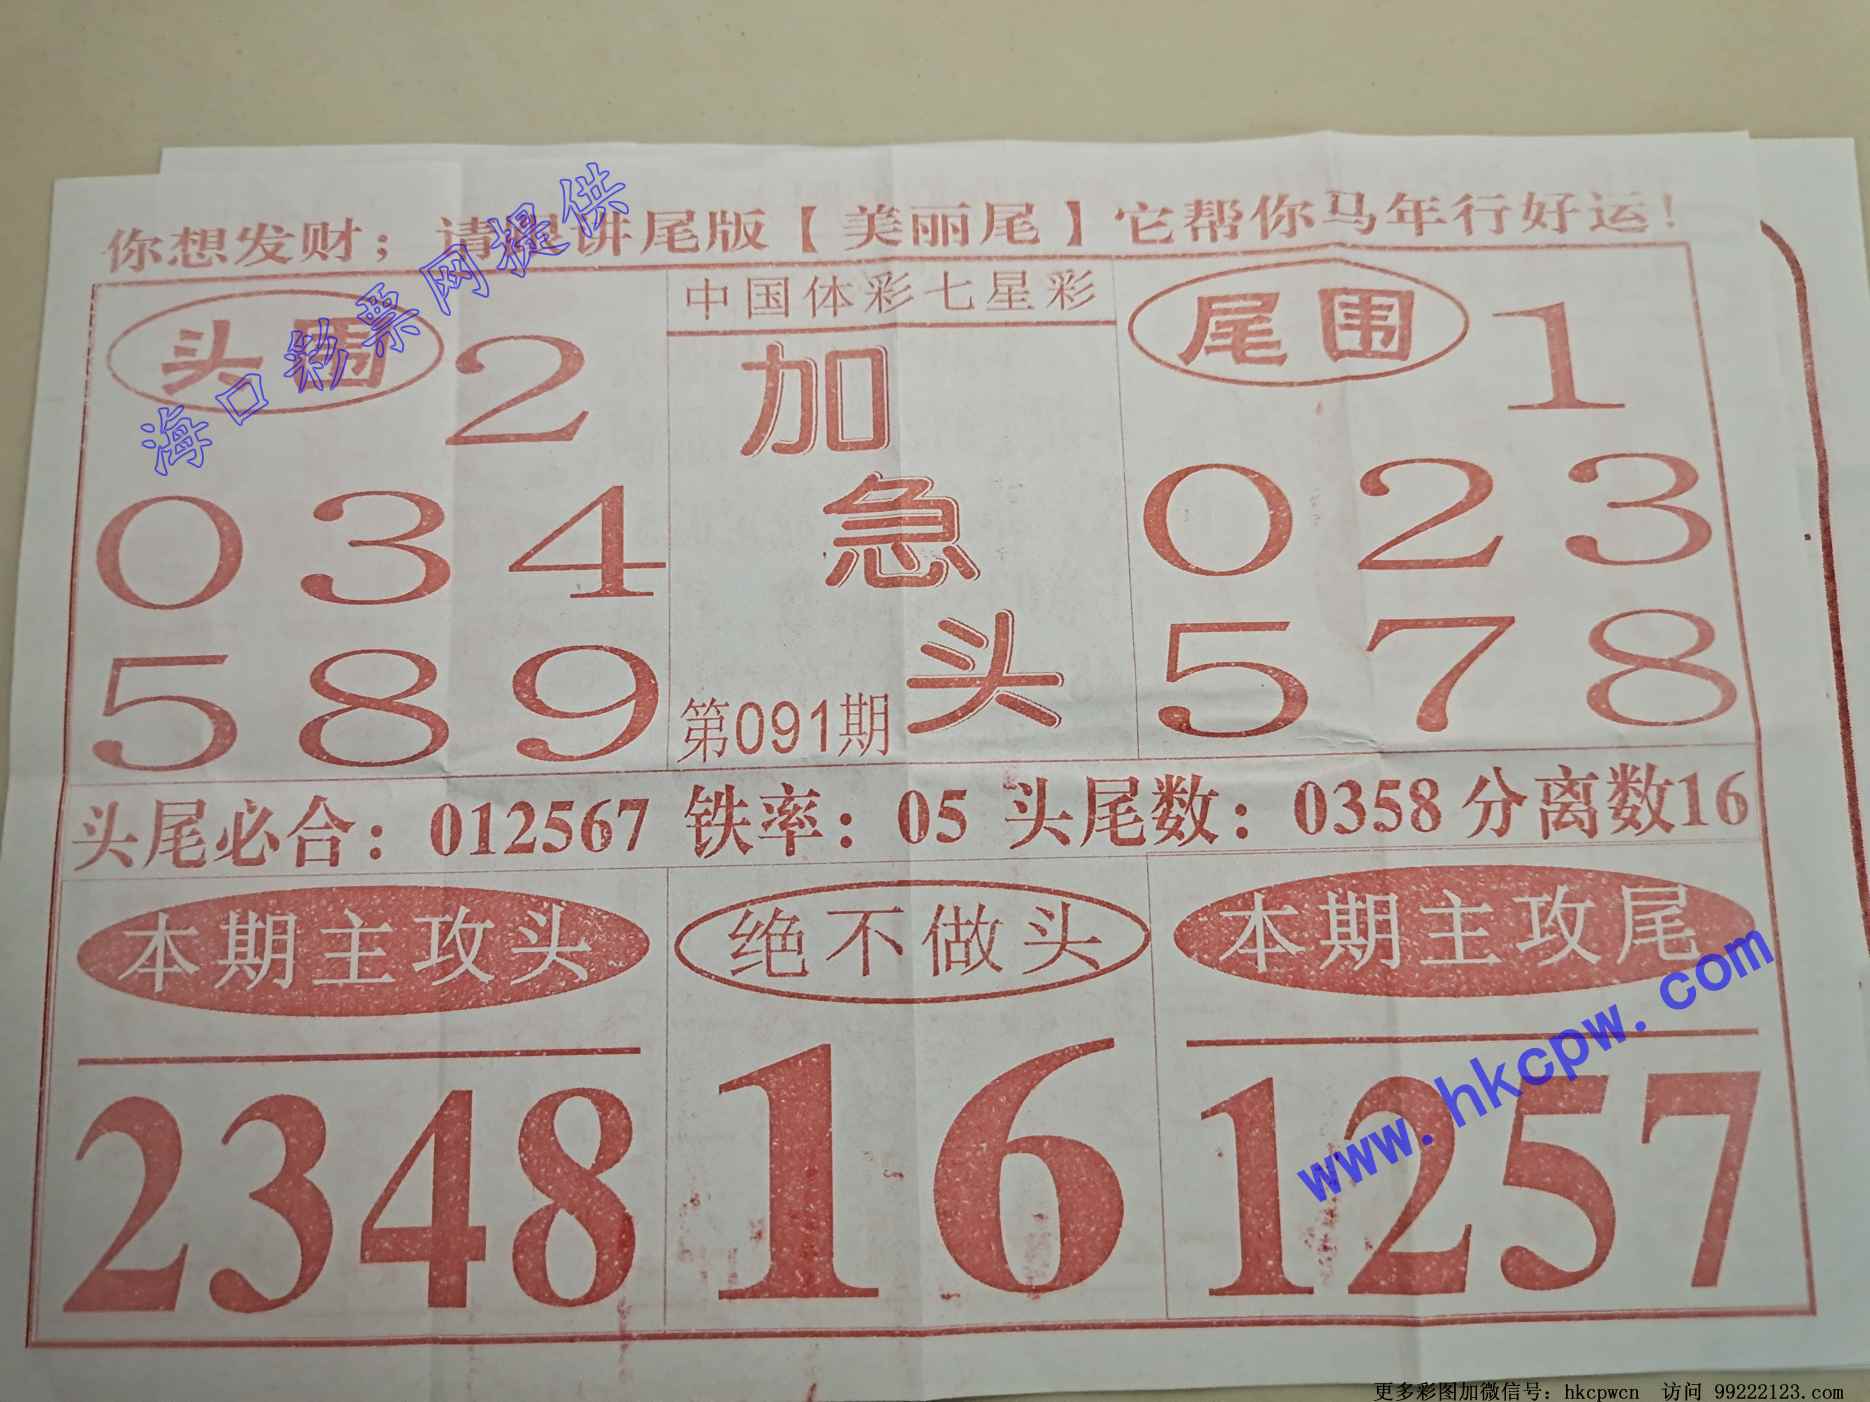 你想发财；请 讲尾版【美丽尾】它帮你马年行好运！
海口彩票网提供
头围 2
0 3 4
5 8 9
中国体彩七星彩
加
急
头
第091期
尾围 1
0 2 3
5 7 8
头尾必合：012567 铁率：05 头尾数：0358 分离数16
本期主攻头
2348
绝不做头
16
本期主攻尾
1257
www.hkcpw.com
更多彩图加微信号：hkcpwcn 访问 99222123.com